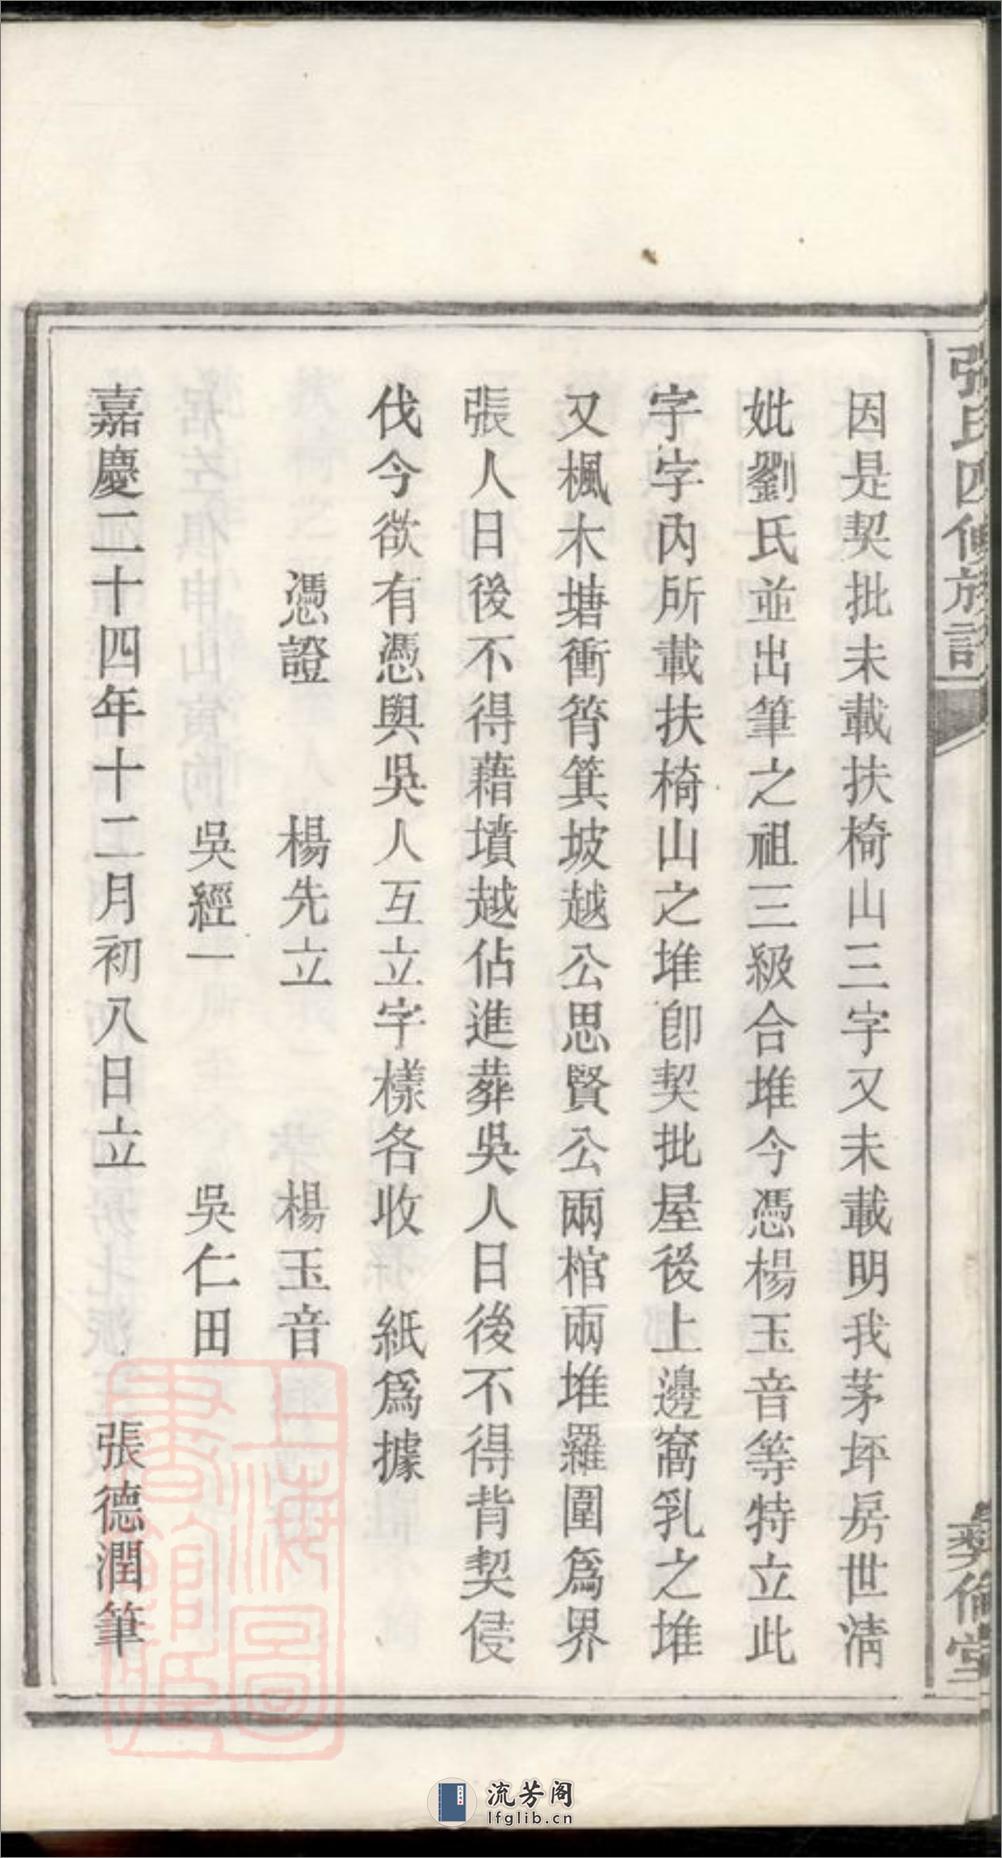 張氏四修族譜
彝倫堂
因是契批未載扶椅山三字又未載明我茅坪房世清
妣劉氏並出筆之祖三級合堆今憑楊玉音等特立此
字字內所載扶椅山之堆卽契批屋後上邊窩乳之堆
又楓木塘衝筲箕坡越公思賢公兩棺兩堆羅圍爲界
張人日後不得藉墳越佔進葬吳人日後不得背契侵
伐今欲有憑與吳人互立字樣各收 紙爲據
憑證 楊先立 楊玉音
吳經一 吳仁田
嘉慶二十四年十二月初八日立 張德潤筆
上海圖書館藏
流芳阁
lfglib.cn